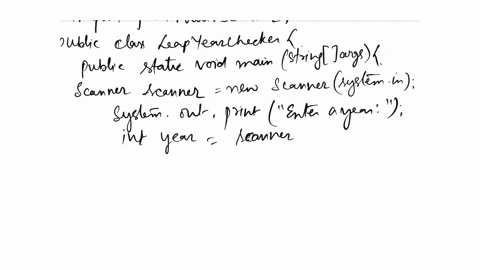 public class LeapYearChecker {
public static void main (String[] args) {
Scanner scanner = new Scanner (system.in);
System. out. print ("Enter a year: ");
int year = scanner